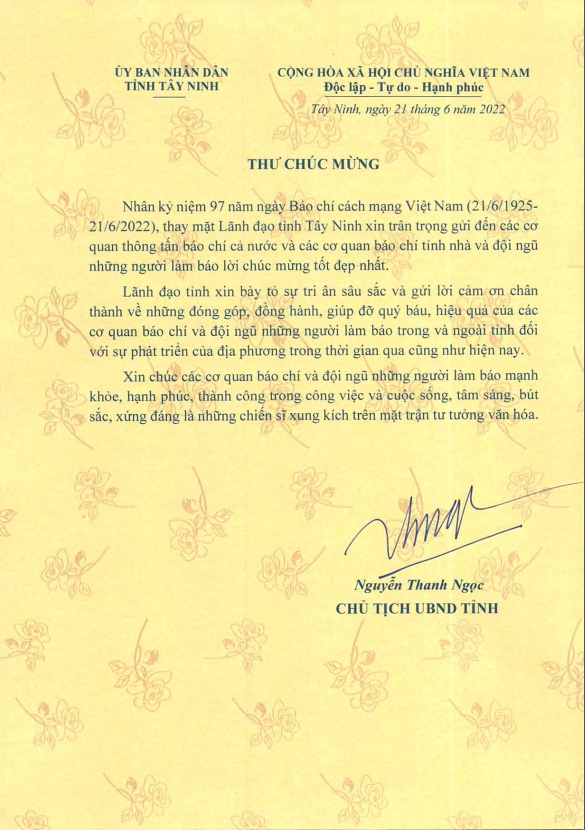 ỦY BAN NHÂN DÂN
TỈNH TÂY NINH
CỘNG HÒA XÃ HỘI CHỦ NGHĨA VIỆT NAM
Độc lập - Tự do - Hạnh phúc
Tây Ninh, ngày 21 tháng 6 năm 2022
THƯ CHÚC MỪNG
Nhân kỷ niệm 97 năm ngày Báo chí cách mạng Việt Nam (21/6/1925-
21/6/2022), thay mặt Lãnh đạo tỉnh Tây Ninh xin trân trọng gửi đến các cơ
quan thông tấn báo chí cả nước và các cơ quan báo chí tỉnh nhà và đội ngũ
những người làm báo lời chúc mừng tốt đẹp nhất.
Lãnh đạo tỉnh xin bày tỏ sự tri ân sâu sắc và gửi lời cảm ơn chân
thành về những đóng góp, đồng hành, giúp đỡ quý báu, hiệu quả của các
cơ quan báo chí và đội ngũ những người làm báo trong và ngoài tỉnh đối
với sự phát triển của địa phương trong thời gian qua cũng như hiện nay.
Xin chúc các cơ quan báo chí và đội ngũ những người làm báo mạnh
khỏe, hạnh phúc, thành công trong công việc và cuộc sống, tâm sáng, bút
sắc, xứng đáng là những chiến sĩ xung kích trên mặt trận tư tưởng văn hóa.
Nguyễn Thanh Ngọc
CHỦ TỊCH UBND TỈNH